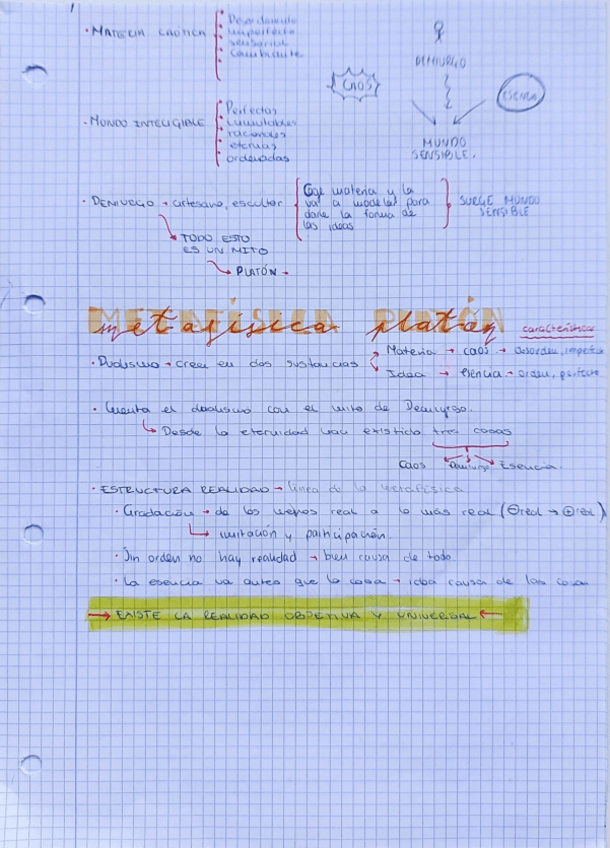 · MATERIA CAÓTICA
Desordenado
imperfecto
sensorial
cambiante
CAOS
DEMIURGO
ESENCIA
MUNDO
SENSIBLE.
· MUNDO INTELIGIBLE
Perfectas
inmutables
racionales
eternas
ordenadas
· DEMIURGO → artesano, escultor
Coge materia y la
va a modelar para
darle la forma de
las ideas
SURGE MUNDO
SENSIBLE
→ TODO ESTO
ES UN MITO
→ PLATÓN -
METAFÍSICA PLATÓN
metafísica platón características
· Dualismo → cree en dos sustancias
Materia → caos → desorden, imperfecto
Idea → esencia → orden, perfecto
· Cuenta el dualismo con el mito de Demiurgo.
↳ Desde la eternidad han existido tres cosas
Caos Demiurgo Esencia.
· ESTRUCTURA REALIDAD → línea de la metafísica
· Gradación → de los menos real a lo más real (⊖real → ⊕real)
↳ imitación y participación.
· Sin orden no hay realidad → bien causa de todo
· La esencia va antes que la cosa → idea causa de las cosas
→ EXISTE LA REALIDAD OBJETIVA Y UNIVERSAL ←